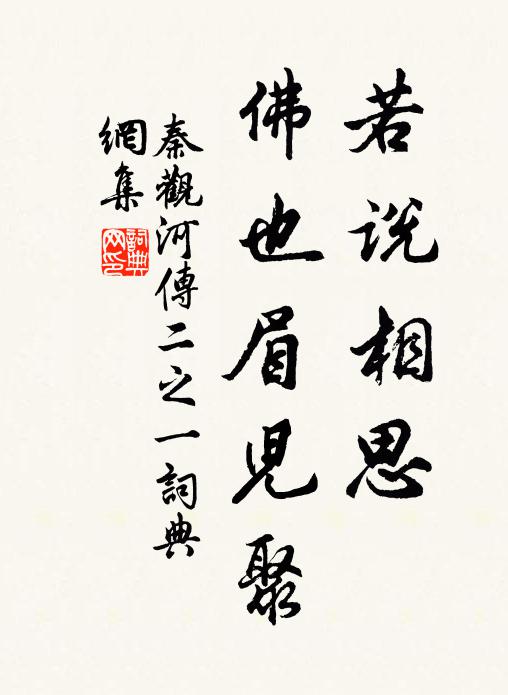 若説相思
佛也眉児聚
秦觀河傳二之一詞典
網集
詞典網印